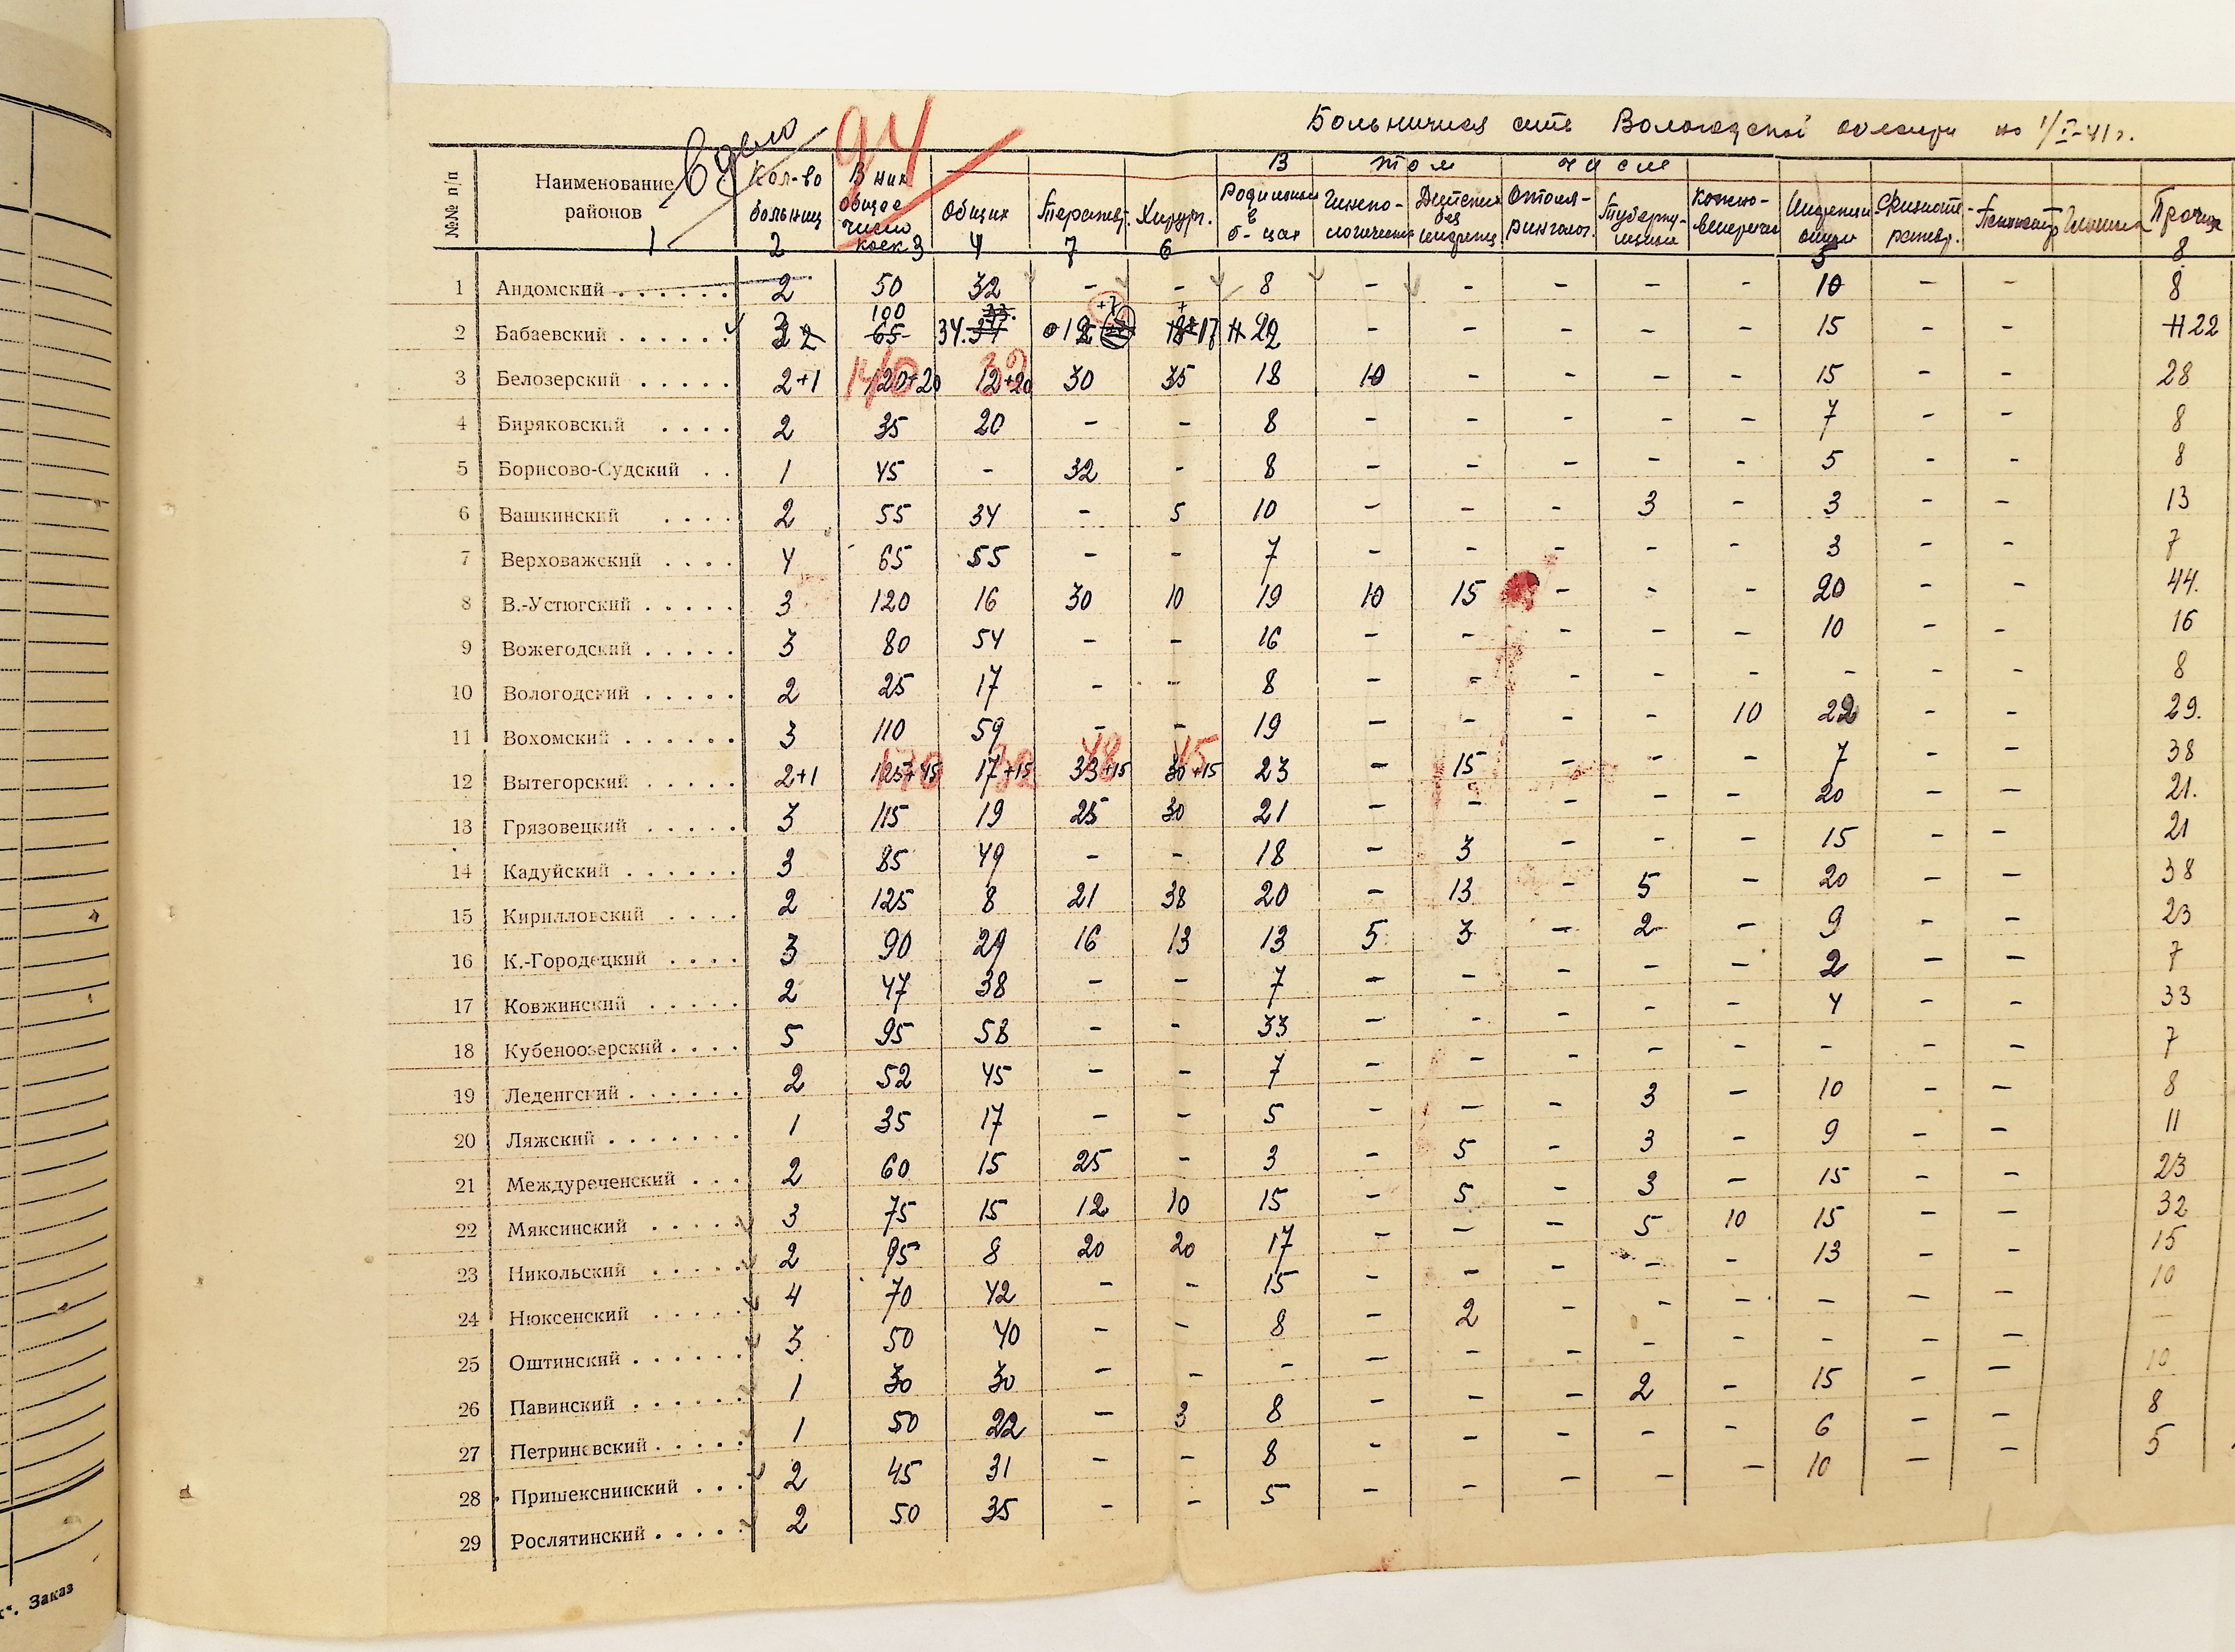 Больничная сеть Вологодской области на 1/I-41 г.
В дело
94
В том числе
№№ п/п Наименование районов Кол-во больниц В них общее число коек Общих Терапевт. Хирург. Родильных в б-цах Гинекологических Детских без инфекц Отоларинголог. Туберкулезн Кожно-венерич Инфекционных Физиотерапевт. Психиатр Прочих
1 2 3 4 7 6 5 8
1 Андомский 2 50 32 - - 8 - - - - - 10 - - 8
2 Бабаевский 3 2 100 65 34 37 33 12 +7 17 H 22 - - - - - 15 - - H 22
3 Белозерский 2+1 120+20 140 12+20 32 30 35 18 10 - - - - 15 - - 28
4 Биряковский 2 35 20 - - 8 - - - - - 7 - - 8
5 Борисово-Судский 1 45 - 32 - 8 - - - - - 5 - - 8
6 Вашкинский 2 55 34 - 5 10 - - - 3 - 3 - - 13
7 Верховажский 4 65 55 - - 7 - - - - - 3 - - 7
8 В.-Устюгский 3 120 16 30 10 19 10 15 - - - 20 - - 44.
9 Вожегодский 3 80 54 - - 16 - - - - - 10 - - 16
10 Вологодский 2 25 17 - - 8 - - - - - - - - 8
11 Вохомский 3 110 59 - - 19 - - - - 10 22 - - 29.
12 Вытегорский 2+1 125+45 170 17+15 32 33+15 48 30+15 45 23 - 15 - - - 7 - - 38
13 Грязовецкий 3 115 19 25 30 21 - - - - - 20 - - 21.
14 Кадуйский 3 85 49 - - 18 - 3 - - - 15 - - 21
15 Кирилловский 2 125 8 21 38 20 - 13 - 5 - 20 - - 38
16 К.-Городецкий 3 90 29 16 13 13 5 3 - 2 - 9 - - 23
17 Ковжинский 2 47 38 - - 7 - - - - - 2 - - 7
18 Кубеноозерский 5 95 58 - - 33 - - - - - 4 - - 33
19 Леденгский 2 52 45 - - 7 - - - - - - - - 7
20 Ляжский 1 35 17 - - 5 - - - 3 - 10 - - 8
21 Междуреченский 2 60 15 25 - 3 - 5 - 3 - 9 - - 11
22 Мяксинский 3 75 15 12 10 15 - 5 - 3 - 15 - - 23
23 Никольский 2 95 8 20 20 17 - - - 5 10 15 - - 32
24 Нюксенский 4 70 42 - - 15 - - - - - 13 - - 15
25 Оштинский 3 50 40 - - 8 - 2 - - - - - - 10
26 Павинский 1 30 30 - - - - - - - - - - - -
27 Петриневский 1 50 22 - 3 8 - - - 2 - 15 - - 10
28 Пришекснинский 2 45 31 - - 8 - - - - - 6 - - 8
29 Рослятинский 2 50 35 - - 5 - - - - - 10 - - 5
Заказ